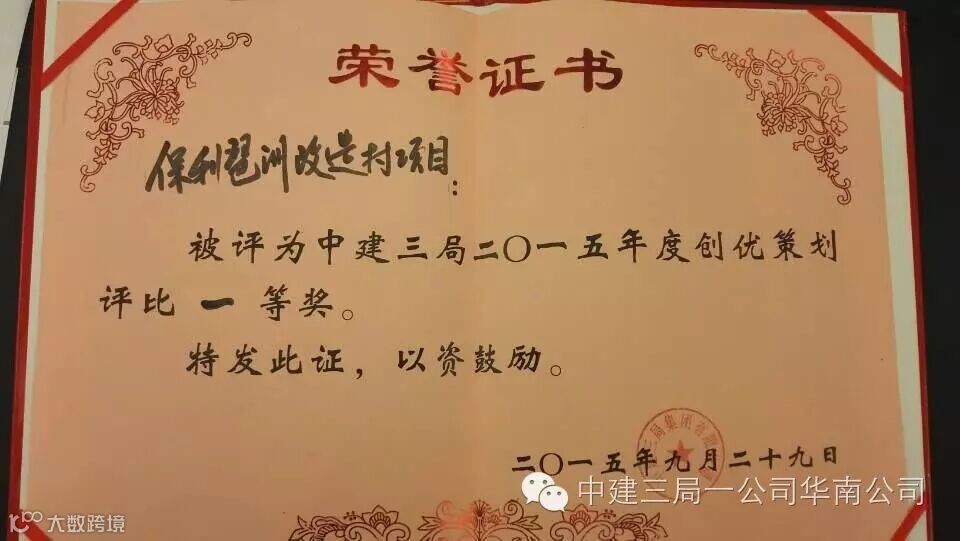 荣誉证书
保利琶洲改造村项目：
被评为中建三局二〇一五年度创优策划
评比 一 等奖。
特发此证，以资鼓励。
二〇一五年九月二十九日
中建三局一公司华南公司
大数跨境